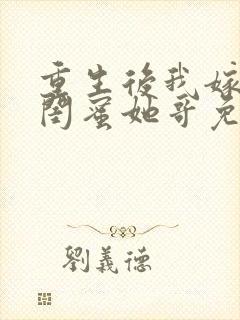 重生後我嫁
閨蜜她哥免
劉義德